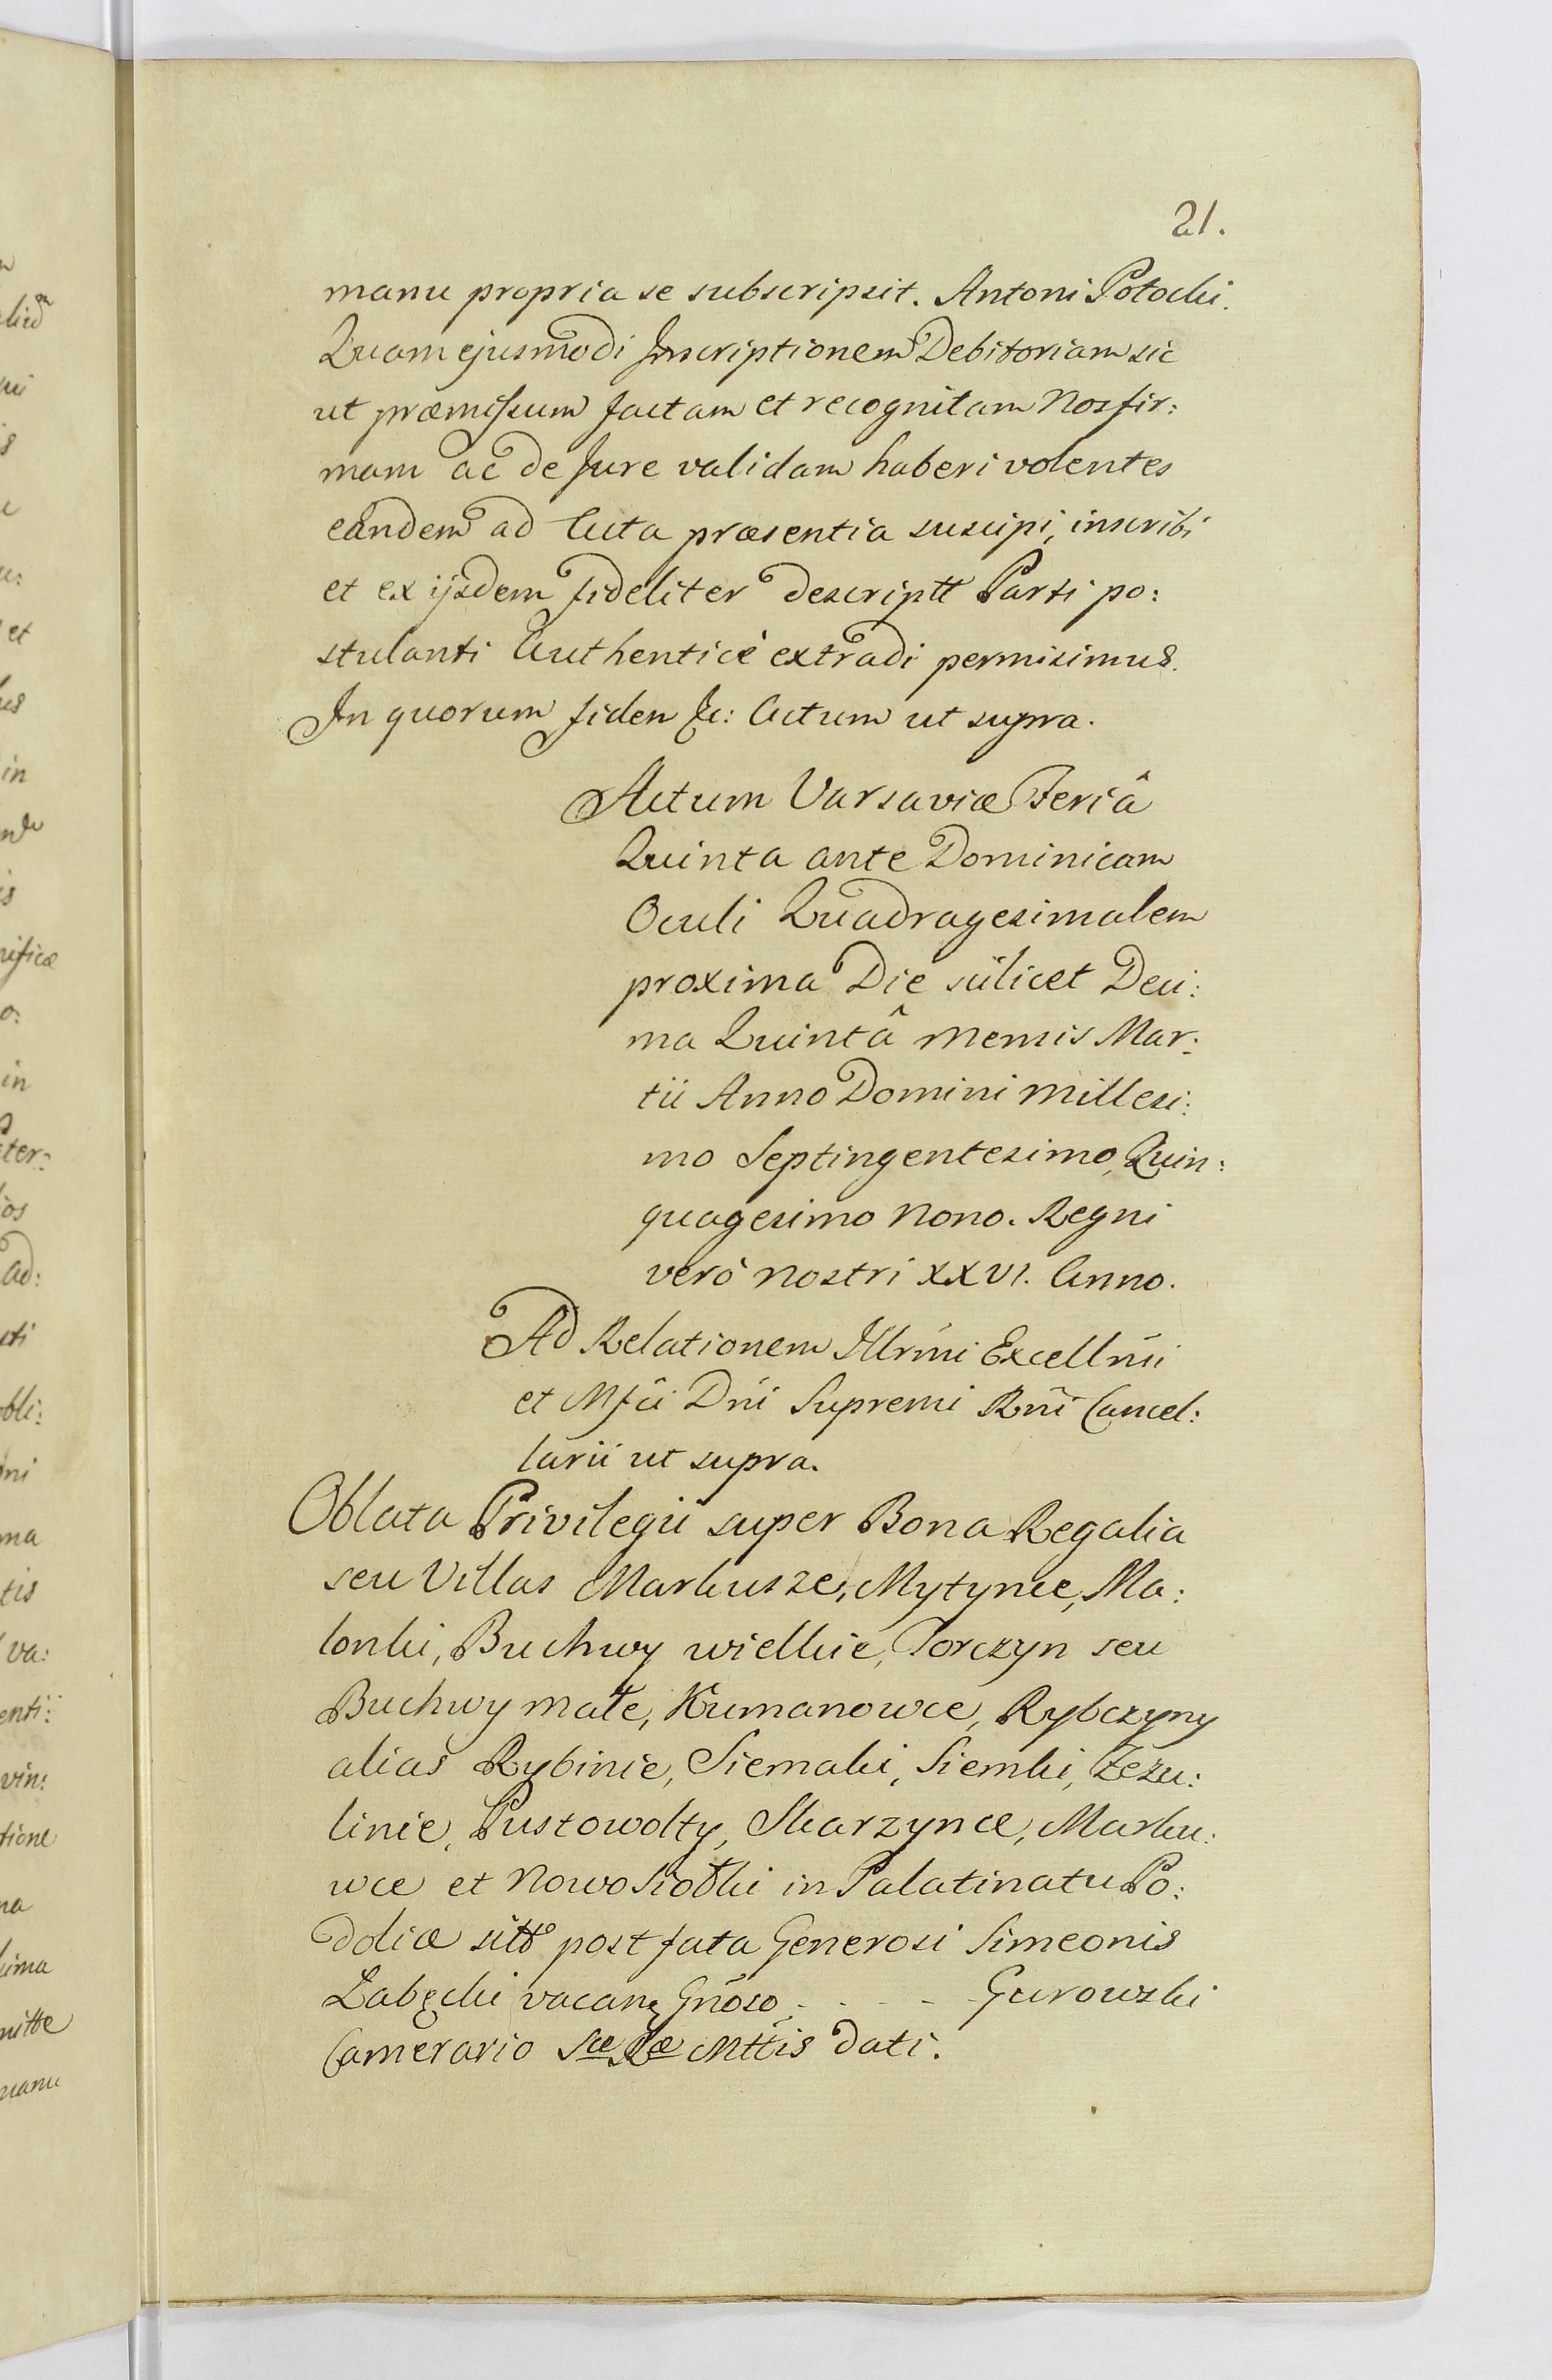 21.
manu propria se subscripsit. Antoni Potocki.
Quam ejusmodi Inscriptionem Debitoriam sic
ut præmissum factam et recognitam Nos fir:
mam ac de Jure validam haberi volentes
eandem ad Acta præsentia suscipi, inscribi
et ex ijsdem fideliter descriptt Parti po:
stulanti Authenticè extradi permisimus.
In quorum fidem &c: Actum ut supra.
Actum Varsaviæ Feriâ
Quinta ante Dominicam
Oculi Quadragesimalem
proxima Die scilicet Deci:
ma Quintâ Mensis Mar:
tii Anno Domini Millesi:
mo Septingentesimo Quin:
quagesimo Nono. Regni
verò Nostri XXVI. Anno.
Ad Relationem Illrmi Excellmi
et Mfci Dni Supremi Rni Cancel:
larii ut supra.
Oblata Privilegii super Bona Regalia
seu Villas Markusze, Mytynce, Ma:
lonki, Buchwy wielkie, Torczyn seu
Buchwy małe, Kumanowce, Rybczyny
alias Rybinie, Siemaki, Siemki, Zezu:
linie, Pustowolty, Skarzynce, Marku:
wce et Nowosiołki in Palatinatu Po:
doliæ sitt post fata Generosi Simeonis
Zabęcki vacan Gnoso - - - - Gurowski
Camerario Sae Rae Mttis dati.